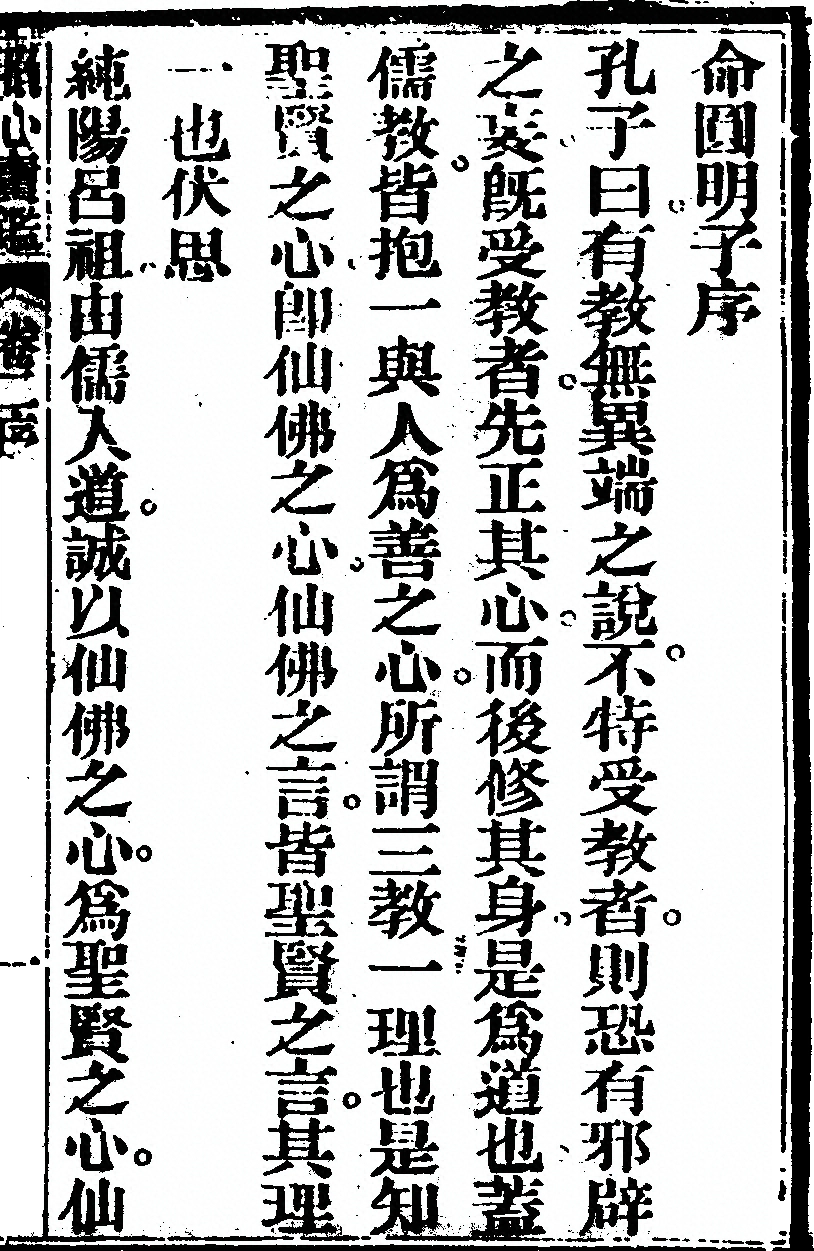 命圓明子序
孔子曰有教無異端之說不特受教者則恐有邪辟
之妄旣受教者先正其心而後修其身是爲道也葢
儒教皆抱一與人爲善之心所謂三教一理也是知
聖賢之心卽仙佛之心仙佛之言皆聖賢之言其理
一也伏思
純陽呂祖由儒人道誠以仙佛之心爲聖賢之心仙
心 鑑 卷一 序